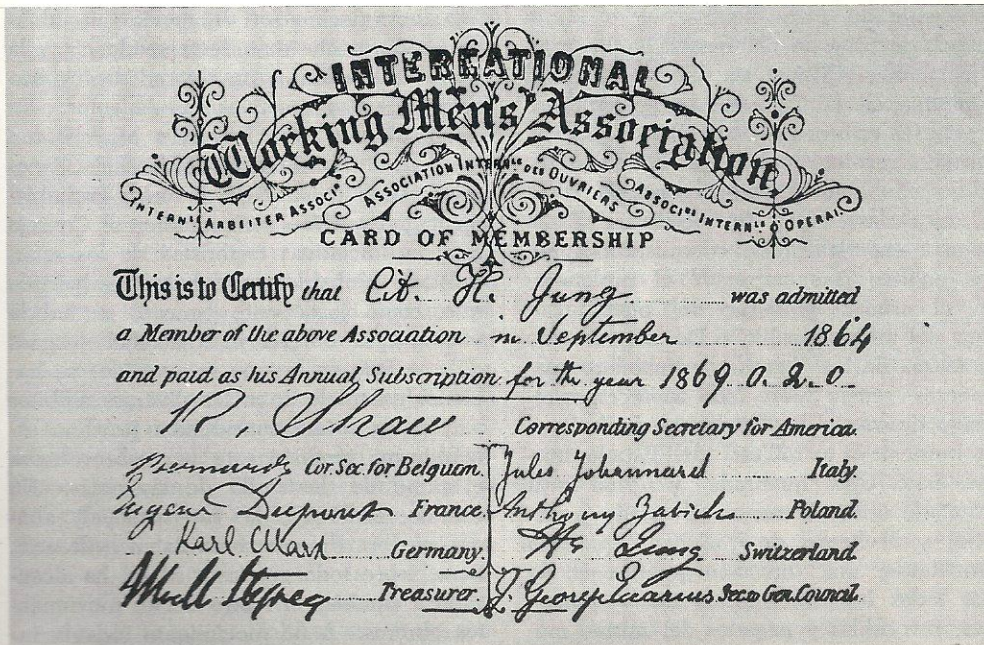 INTERNATIONAL
Working Men's Association
INTERN^LE ARBEITER ASSOCI^N ASSOCIATION INTERN^LE DES OUVRIERS ASSOCI^NE INTERN^LE D'OPERAI
CARD OF MEMBERSHIP
This is to Certify that Cit. H. Jung was admitted
a Member of the above Association in September 1864
and paid as his Annual Subscription for the year 1869 0. 2. 0.
R. Shaw Corresponding Secretary for America.
Bernard Cor. Sec. for Belgium. Jules Johannard Italy.
Eugene Dupont France. Anthony Zabicki Poland.
Karl Marx Germany. H. Jung Switzerland.
Treasurer. J. George Eccarius Sec. to Gen. Council.